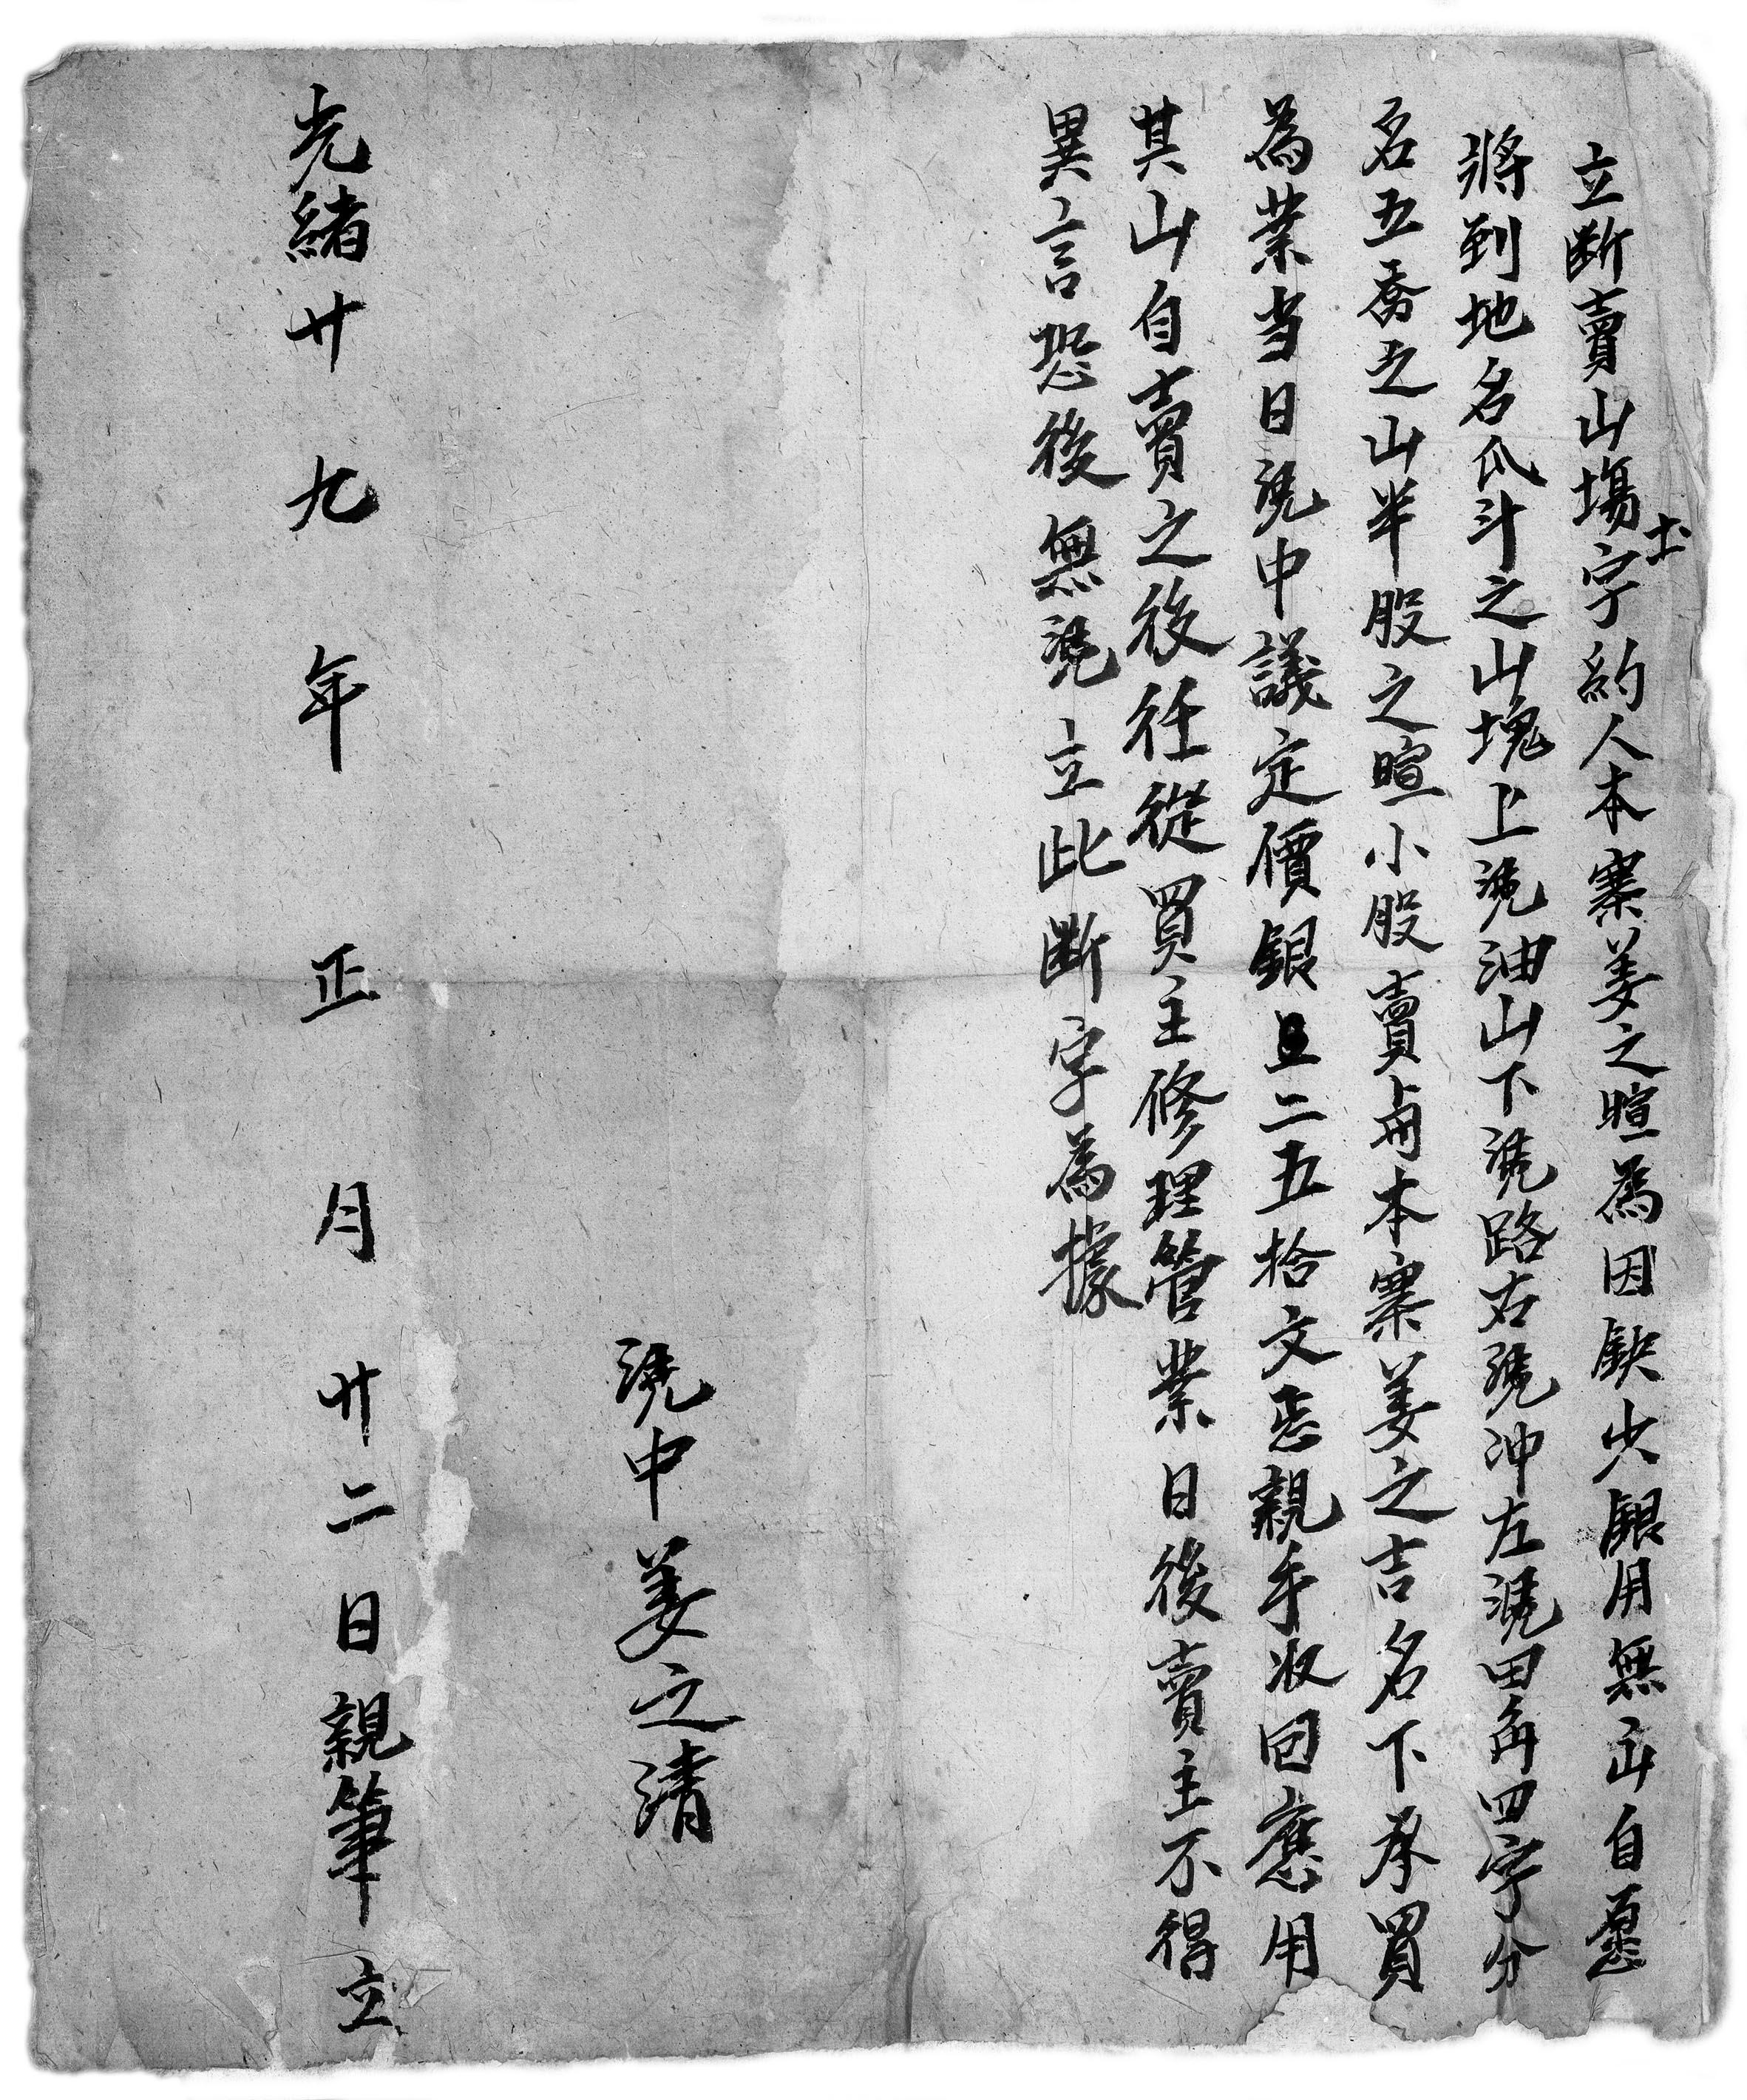 立断賣山塲土字約人本寨姜之暄為因缺少銀用無出自愿
將到地名瓜斗之山塊上凴油山下凴路右凴冲左凴田角四字分
名五喬之山半股之暄小股賣與本寨姜之吉名下承買
為業当日凴中議定價銀二五拾文悉親手收回應用
其山自賣之後任從買主修理管業日後賣主不得
異言恐後無凴立此断字為據
凴中姜之清
光緒廿九年正月廿二日親筆立